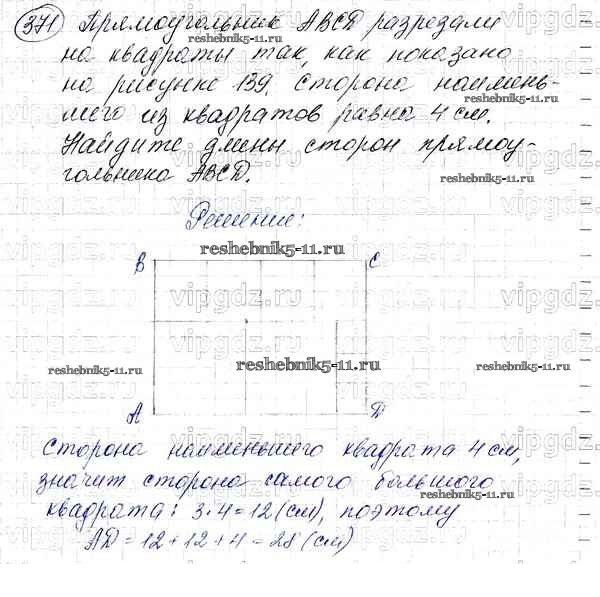 371 Прямоугольник ABCD разрезали
на квадраты так, как показано
на рисунке 139. Сторона наимень-
шего из квадратов равна 4 см.
Найдите длины сторон прямоу-
гольника ABCD.
Решение:
B C
A D
Сторона наименьшего квадрата 4 см,
значит сторона самого большого
квадрата: 3·4=12 (см), поэтому
AD = 12 + 12 + 4 = 28 (см)
reshebnik5-11.ru
reshebnik5-11.ru
reshebnik5-11.ru
reshebnik5-11.ru
reshebnik5-11.ru
reshebnik5-11.ru
reshebnik5-11.ru
reshebnik5-11.ru
reshebnik5-11.ru
vipgdz
vipgdz
vipgdz